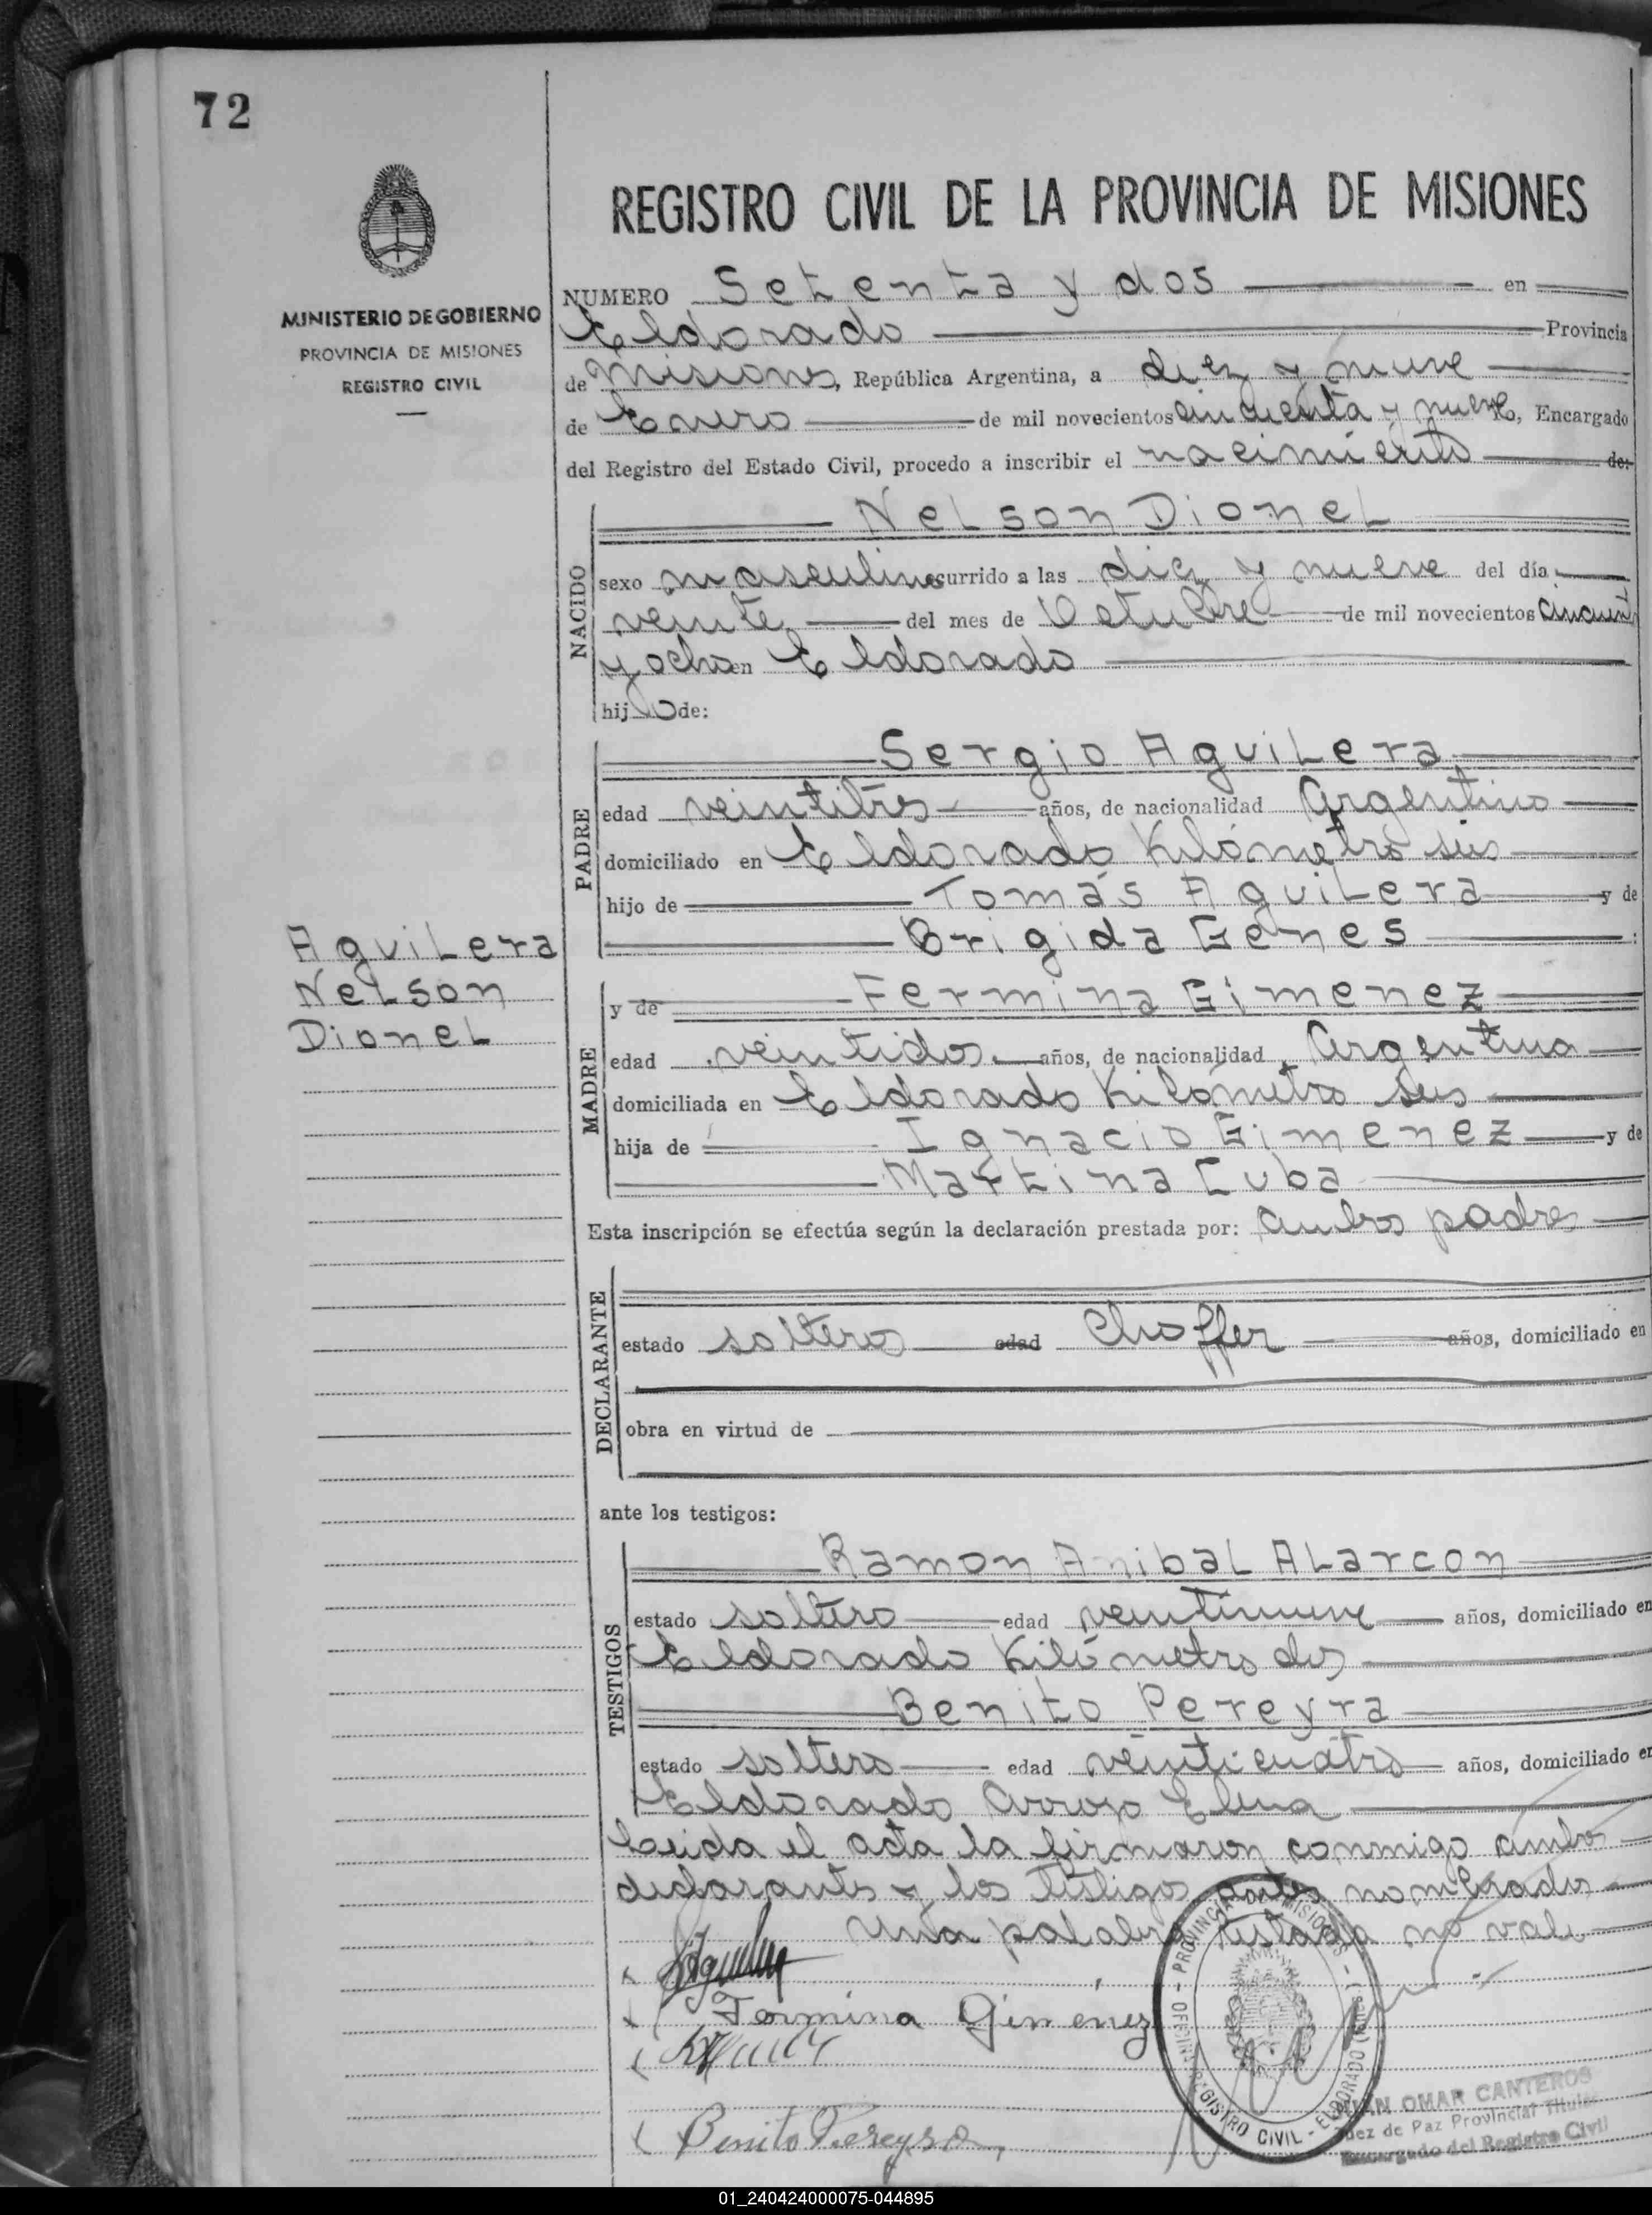 72
MINISTERIO DE GOBIERNO
PROVINCIA DE MISIONES
REGISTRO CIVIL
REGISTRO CIVIL DE LA PROVINCIA DE MISIONES
NUMERO Setenta y dos en
Eldorado Provincia
de Misiones, República Argentina, a diez y nueve
de Enero de mil novecientos cincuenta y nueve, Encargado
del Registro del Estado Civil, procedo a inscribir el nacimiento de:
NACIDO
Nelson Dionel
sexo masculino ocurrido a las diez y nueve del día
veinte del mes de Octubre de mil novecientos cincuenta
y ocho en Eldorado
hijo de:
PADRE
Sergio Aguilera
edad veintitres años, de nacionalidad Argentino
domiciliado en Eldorado Kilómetro seis
hijo de Tomás Aguilera y de
Brigida Genes :
Aguilera
Nelson
Dionel
MADRE
y de Fermina Gimenez
edad veintidos años, de nacionalidad Argentina
domiciliada en Eldorado Kilómetro seis
hija de Ignacio Gimenez y de
Martina Cuba
Esta inscripción se efectúa según la declaración prestada por: ambos padres
DECLARANTE
estado soltero edad Choffer años, domiciliado en
obra en virtud de
ante los testigos:
TESTIGOS
Ramon Anibal Alarcon
estado soltero edad veintinueve años, domiciliado en
Eldorado Kilómetro dos
Benito Pereyra
estado soltero edad veinticuatro años, domiciliado en
Eldorado Arroyo Elena
Leida el acta la firmaron conmigo ambos
declarantes y los testigos antes nombrados
Una palabra testada no vale
Fermina Gimenez
Benito Pereyra
OFICINA REGISTRO CIVIL - ELDORADO (Mnes.) - PROVINCIA DE MISIONES
JUAN OMAR CANTEROS
Juez de Paz Provincial Titular
Encargado del Registro Civil
01_240424000075-044895